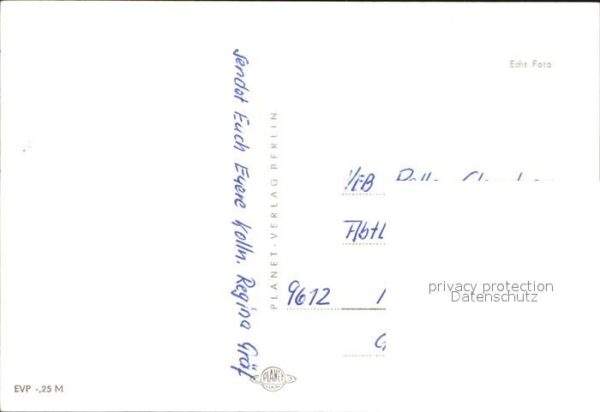 Echt Foto
sendet Euch Euere Kolln. Regina Gräf
PLANET-VERLAG BERLIN
VEB
Abtl
9612
privacy protection
Datenschutz
PLANET
EVP -,25 M